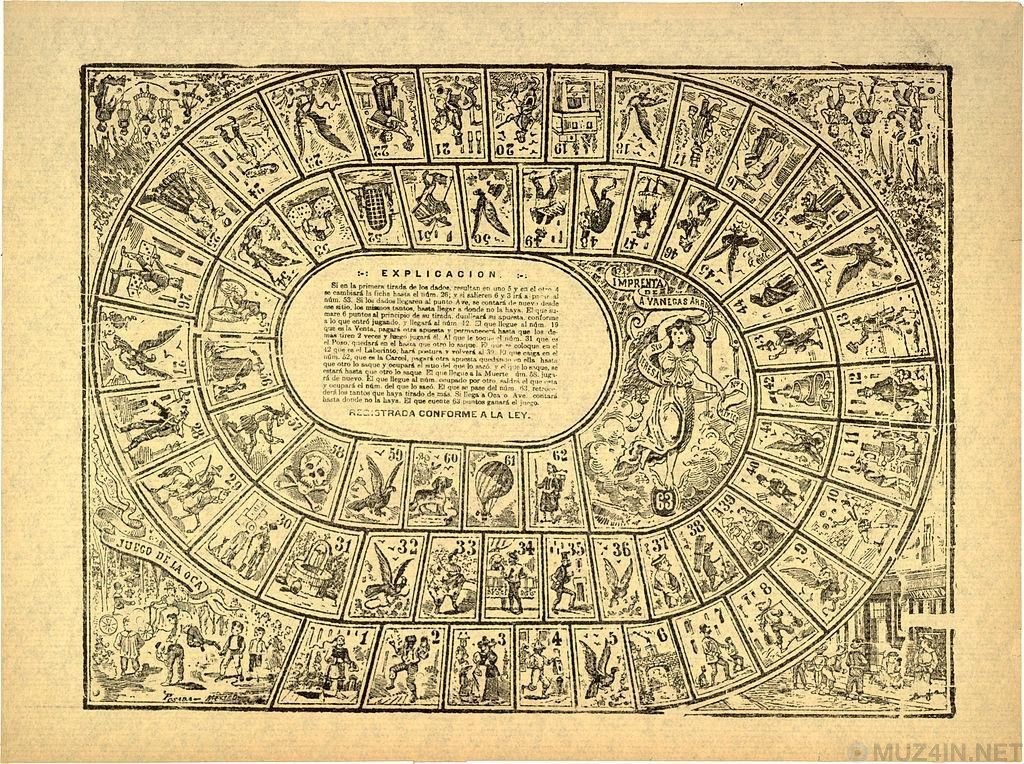 :-: EXPLICACION. :-:
Si en la primera tirada de los dados, resultan en uno 5 y en el otro 4
se cambiará la ficha hasta el núm. 26; y si salieren 6 y 3 irá a parar al
núm. 53. Si los dados llegaren al punto Ave, se contará de nuevo desde
ese sitio, los mismos tantos, hasta llegar a donde no la haya. El que su-
mare 6 puntos al principio de su tirada, duplicará su apuesta, conforme
a lo que entró jugando, y llegará al núm. 12. El que llegue al núm. 19
que es la Venta, pagará otra apuesta y permanecerá hasta que los de-
mas tiren 2 veces y luego jugará él. Al que le toque el núm. 31 que es
el Poso, quedará en el hasta que otro lo saque. El que se coloque en el
42 que es el Laborinto, hará postura y volverá al 39. El que caiga en el
núm. 52, que es la Carcel, pagará otra apuesta quedando en ella hasta
que otro lo saque y ocupará el sitio del que lo sacó, y el que lo saque, se
estará hasta que otro lo saque. El que llegue a la Muerte núm. 58, juga-
rá de nuevo. El que llegue al núm. ocupado por otro, saldrá el que esta
y ocupará el núm. del que lo sacó. El que se pase del núm. 63, retroce-
derá los tantos que haya tirado de más. Si llega a Oca o Ave, contará
hasta donde no la haya. El que cuente 63 puntos ganará el juego.
REGISTRADA CONFORME A LA LEY.
IMPRENTA
DE
A. VANEGAS ARR
JUEGO DE LA OCA
1
2
3
4
5
6
7
8
9
10
11
12
14
15
16
17
18
19
20
21
22
23
24
25
26
29
30
31
32
33
34
35
36
37
38
39
40
41
42
44
45
46
47
48
49
50
51
52
53
54
57
58
59
60
61
62
63
MUZ4IN.NET